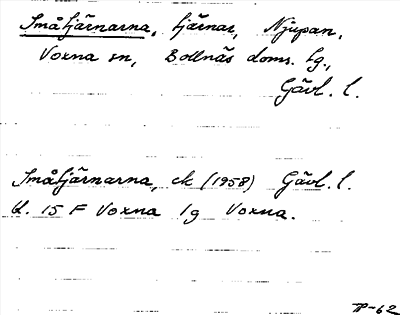 Småtjärnarna, tjärnar, Njupan,
Voxna sn, Bollnäs doms. lg.,
Gävl. l.
Småtjärnarna, ek (1958) Gävl. l.
bl. 15 F Voxna 1g Voxna.
-62